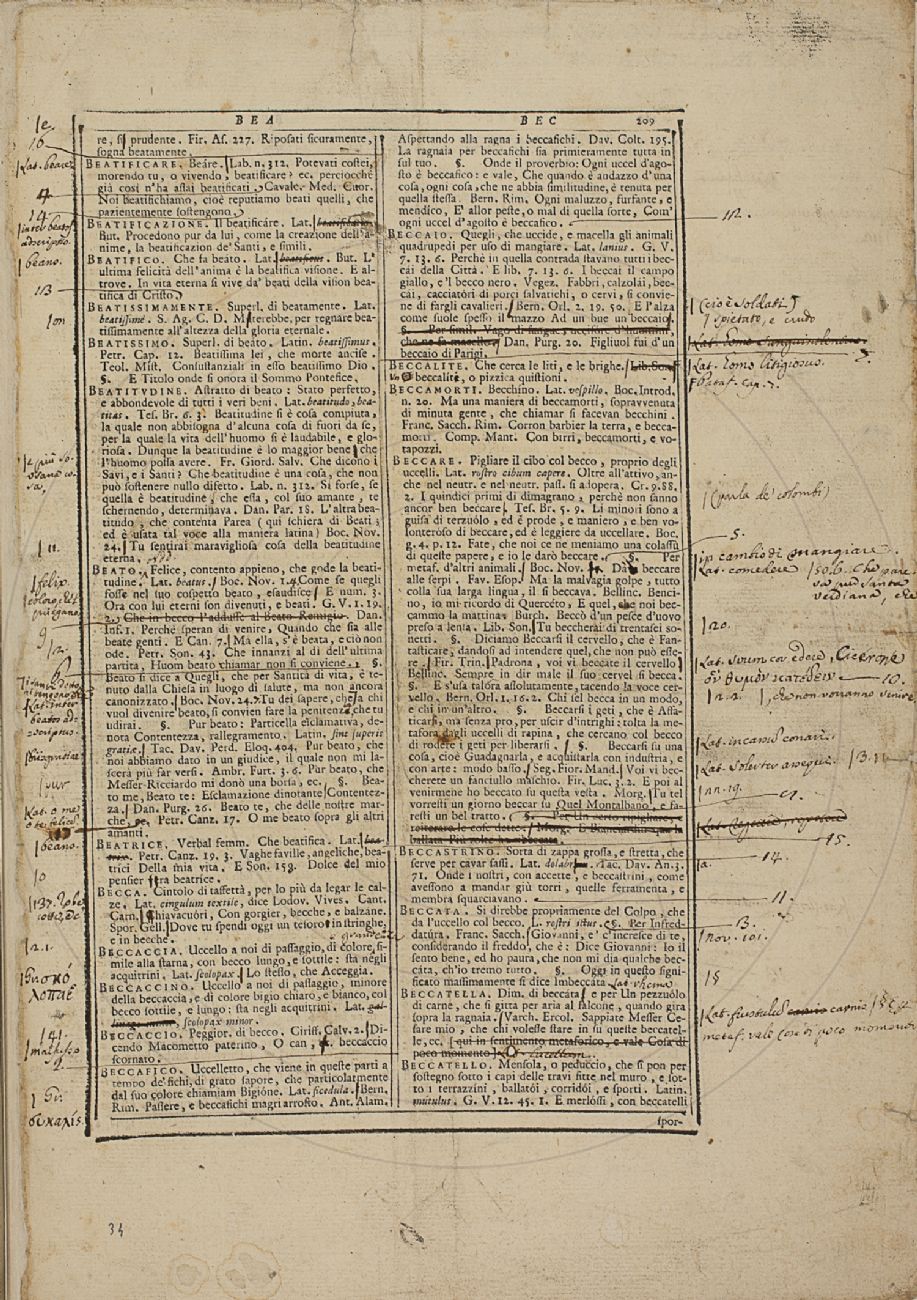 BEA
BEC
209
re, sì prudente. Fir. As. 227. Riposati sicuramente,
sogna beatamente.
BEATIFICARE. Beáre. Lab. n. 312. Potevati costei,
morendo tu, o vivendo, beatificare? ec. perciocchè
già così n'ha assai beatificati. Cavalc. Med. Cuor.
Noi beatifichiamo, cioè reputiamo beati quelli, che
pazientemente sostengono.
BEATIFICAZIONE. Il beatificáre. Lat.
But. Procedono pur da lui, come la creazione dell'a-
nime, la beatificazion de' Santi, e simili.
BEATIFICO. Che fa beato. Lat. beatificus. But. L'
ultima felicità dell'anima è la beatifica visione. E al-
trove. In vita eterna si vive da' beati della vision bea-
tifica di Cristo.
BEATISSIMAMENTE. Superl. di beatamente. Lat.
beatissimè. S. Ag. C. D. Misterebbe, per regnare bea-
tissimamente all'altezza della gloria eternale.
BEATISSIMO. Superl. di beato. Latin. beatissimus.
Petr. Cap. 12. Beatissima lei, che morte ancise.
Teol. Mist. Consustanziali in esso beatissimo Dio.
§. E Titolo onde s'onora il Sommo Pontefice.
BEATITVDINE. Astratto di beato: Stato perfetto,
e abbondevole di tutti i veri beni. Lat. beatitudo, bea-
titas. Tes. Br. 6. 3. Beatitudine si è cosa compiuta,
la quale non abbisogna d'alcuna cosa di fuori da se,
per la quale la vita dell'huomo si è laudabile, e glo-
riosa. Dunque la beatitudine è lo maggior bene, che
l'huomo possa avere. Fr. Giord. Salv. Che dicono i
Savi, e i Santi? Che beatitudine è una cosa, che non
può sostenere nullo difetto. Lab. n. 312. Sì forse, se
quella è beatitudine, che essa, col suo amante, te
schernendo, determinava. Dan. Par. 18. L'altra bea-
titudo, che contenta Parea (qui schiera di Beati;
ed è usata tal voce alla maniera latina) Boc. Nov.
24. Tu sentirai maravigliosa cosa della beatitudine
eterna.
BEATO. Felice, contento appieno, che gode la beati-
tudine. Lat. beatus. Boc. Nov. 1.4. Come se quegli
fosse nel suo cospetto beato, esaudisce. E num. 3.
Ora con lui eterni son divenuti, e beati. G. V. 1. 19.
2. Che in becco l'addusse al Beato Remigio. Dan.
Inf. 1. Perchè speran di venire, Quando che sia alle
beate genti. E Can. 7. Ma ella, s'è beata, e ciò non
ode. Petr. Son. 43. Che innanzi al dì dell'ultima
partita, Huom beato chiamar non si conviene. §.
Beato si dice a Quegli, che per Santità di vita, è te-
nuto dalla Chiesa in luogo di salute, ma non ancora
canonizzato. Boc. Nov. 24.7. Tu dei sapere, che chi
vuol divenire beato, si convien fare la penitenza, che tu
udirai. §. Pur beato: Particella esclamativa, de-
nota Contentezza, rallegramento. Latin. sint superis
gratiæ. Tac. Dav. Perd. Eloq. 404. Pur beato, che
noi abbiamo dato in un giudice, il quale non mi la-
scerà più far versi. Ambr. Furt. 3. 6. Pur beato, che
Messer Ricciardo mi donò una borsa, ec. §. Bea-
to me, Beato te: Esclamazione dinotante Contentez-
za. Dan. Purg. 26. Beato te, che delle nostre mar-
che, ec. Petr. Canz. 17. O me beato sopra gli altri
amanti.
BEATRICE. Verbal femm. Che beatifica. Lat.
Petr. Canz. 19. 3. Vaghe faville, angeliche, bea-
trici Della mia vita. E Son. 153. Dolce del mio
pensier beatrice.
BECCA. Cintolo di taffettà, per lo più da legar le cal-
ze. Lat. cingulum textile, dice Lodov. Vives. Cant.
Carn. Chiavacuóri, Con gorgier, becche, e balzane.
Spor. Gell. Dove tu spendi oggi un tesoro in stringhe,
e in becche.
BECCACCIA. Uccello a noi di passaggio, di colore, si-
mile alla starna, con becco lungo, e sottile: sta negli
acquitrini. Lat. scolopax. Lo stesso, che Acceggia.
BECCACCINO. Uccello a noi di passaggio, minore
della beccaccia, e di colore bigio chiaro, e bianco, col
becco sottile, e lungo: sta negli acquitrini. Lat.
scolopax minor.
BECCACCIO. Peggior. di becco. Ciriff. Calv. 2. Di-
cendo Macometto paterino, O can, beccaccio
scornato.
BECCAFICO. Uccelletto, che viene in queste parti a
tempo de' fichi, di grato sapore, che particolarmente
dal suo colore chiamiam Bigióne. Lat. ficedula. Bern.
Rim. Passere, e beccafichi magri arrosto. Ant. Alam.
Aspettando alla ragna i beccafichi. Dav. Colt. 195.
La ragnaia per beccafichi sia primieramente tutta in
sul tuo. §. Onde il proverbio: Ogni uccel d'ago-
sto è beccafico: e vale, Che quando è andazzo d'una
cosa, ogni cosa, che ne abbia similitudine, è tenuta per
quella stessa. Bern. Rim. Ogni maluzzo, furfante, e
mendico, E' allor peste, o mal di quella sorte, Com'
ogni uccel d'agosto è beccafico.
BECCAIO. Quegli, che uccide, e macella gli animali
quadrupedi per uso di mangiare. Lat. lanius. G. V.
7. 13. 6. Perchè in quella contrada stavano tutti i bec-
cai della Città. E lib. 7. 13. 6. I beccai il campo
giallo, e 'l becco nero. Vegez. Fabbri, calzolái, bec-
cái, cacciatóri di porci salvatichi, o cervi, si convie-
ne di fargli cavalieri. Bern. Orl. 2. 19. 50. E l'alza
come suole spesso il mazzo Ad un bue un beccaio.
§. Per simil. Vago di sangue, uccisore d'huomini,
che ne fa macello. Dan. Purg. 20. Figliuol fui d'un
beccaio di Parigi.
BECCALITE. Che cerca le liti, e le brighe.
beccalite, o pizzica quistioni.
BECCAMORTI. Becchino. Lat. vespillo. Boc. Introd.
n. 20. Ma una maniera di beccamorti, sopravvenuta
di minuta gente, che chiamar si facevan becchini.
Franc. Sacch. Rim. Corron barbier la terra, e becca-
morti. Comp. Mant. Con birri, beccamorti, e vo-
tapozzi.
BECCARE. Pigliare il cibo col becco, proprio degli
uccelli. Lat. rostro cibum capere. Oltre all'attivo, an-
che nel neutr. e nel neutr. pass. si adopera. Cr. 9. 88.
2. I quindici primi dì dimagrano, perchè non sanno
ancor ben beccare. Tes. Br. 5. 9. Li minori sono a
guisa di terzuólo, ed è prode, e maniero, e ben vo-
lonteroso di beccare, ed è leggiere da uccellare. Boc.
g. 4. p. 12. Fate, che noi ce ne meniamo una colassù
di queste papere, e io le darò beccare. §. Per
metaf. d'altri animali. Boc. Nov. Da beccare
alle serpi. Fav. Esop. Ma la malvagia golpe, tutto
colla sua larga lingua, il si beccava. Bellinc. Benci-
no, io mi ricordo di Quercéto, E quel, che noi bec-
cammo la mattina. Burch. Beccò d'un pesce d'uovo
preso a lenta. Lib. Son. Tu beccherai di trentasei so-
netti. §. Diciamo Beccarsi il cervello, che è Fan-
tasticare, dandosi ad intendere quel, che non può esse-
re. Fir. Trin. Padrona, voi vi beccate il cervello.
Bellinc. Sempre in dir male il suo cervel si becca.
§. E s'usa talora assolutamente, tacendo la voce cer-
vello. Bern. Orl. 1. 16. 2. Chi sel becca in un modo,
e chi in un'altro. §. Beccarsi i geti, che è Affa-
ticarsi, ma senza pro, per uscir d'intrighi: tolta la me-
tafora dagli uccelli di rapina, che cercano col becco
di rodere i geti per liberarsi. §. Beccarsi su una
cosa, cioè Guadagnarla, e acquistarla con industria, e
con arte: modo basso. Seg. Fior. Mand. Voi vi bec-
cherete un fanciullo maschio. Fir. Luc. 3. 2. E poi al
venirmene ho beccato su questa vesta. Morg. Tu tel
vorresti un giorno beccar su Quel Montalbano, e fa-
resti un bel tratto. §. Per Un certo ripigliare, e
reiterare le cose dette. Morg. E Bianciardin qui la
ballata Più volte
BECCASTRINO. Sorta di zappa grossa, e stretta, che
serve per cavar sassi. Lat. dolabra. Tac. Dav. An. 3.
71. Onde i nostri, con accette, e beccastrini, come
avessono a mandar giù torri, quelle ferramenta, e
membra squarciavano.
BECCATA. Si direbbe propriamente del Colpo, che
da l'uccello col becco. L. rostri ictus. §. Per Infred-
datúra. Franc. Sacch. Giovanni, e' c'incresce di te,
considerando il freddo, che è: Dice Giovanni: Io il
sento bene, ed ho paura, che non mi dia qualche bec-
cáta, ch'io tremo tutto. §. Oggi in questo signi-
ficato massimamente si dice Imbeccáta
BECCATELLA. Dim. di beccáta: e per Un pezzuólo
di carne, che si gitta per aria al falcone, quando gira
sopra la ragnaia. Varch. Ercol. Sappiate Messer Ce-
sare mio, che chi volesse stare in su queste beccatel-
le, ec. qui in sentimento metaforico, e vale Cosa di
poco momento
BECCATELLO. Mensola, o peduccio, che si pon per
sostegno sotto i capi delle travi fitte nel muro, e sot-
to i terrazzini, ballatói, corridói, e sporti. Latin.
mutulus. G. V. 12. 45. 1. E merlóssi, con beccatelli
spor-
16
Lat. beare
4.
14
beano.
113
on
11.
felix.
9
12.
pur
beano.
10
2.1.
Gr. σκο
λοπαξ
141.
Gr.
συκαλίς
112.
(cioè soldati)
spietato, e crudo
Lat. homo sanguinolentus
Lat. homo litigiosus.
(parla de' colombi)
5.
in cambio di mangiare.
Lat. comedere
20.
10.
Lat. incassum conari.
15.
14.
11.
13.
nov. 101.
15
34